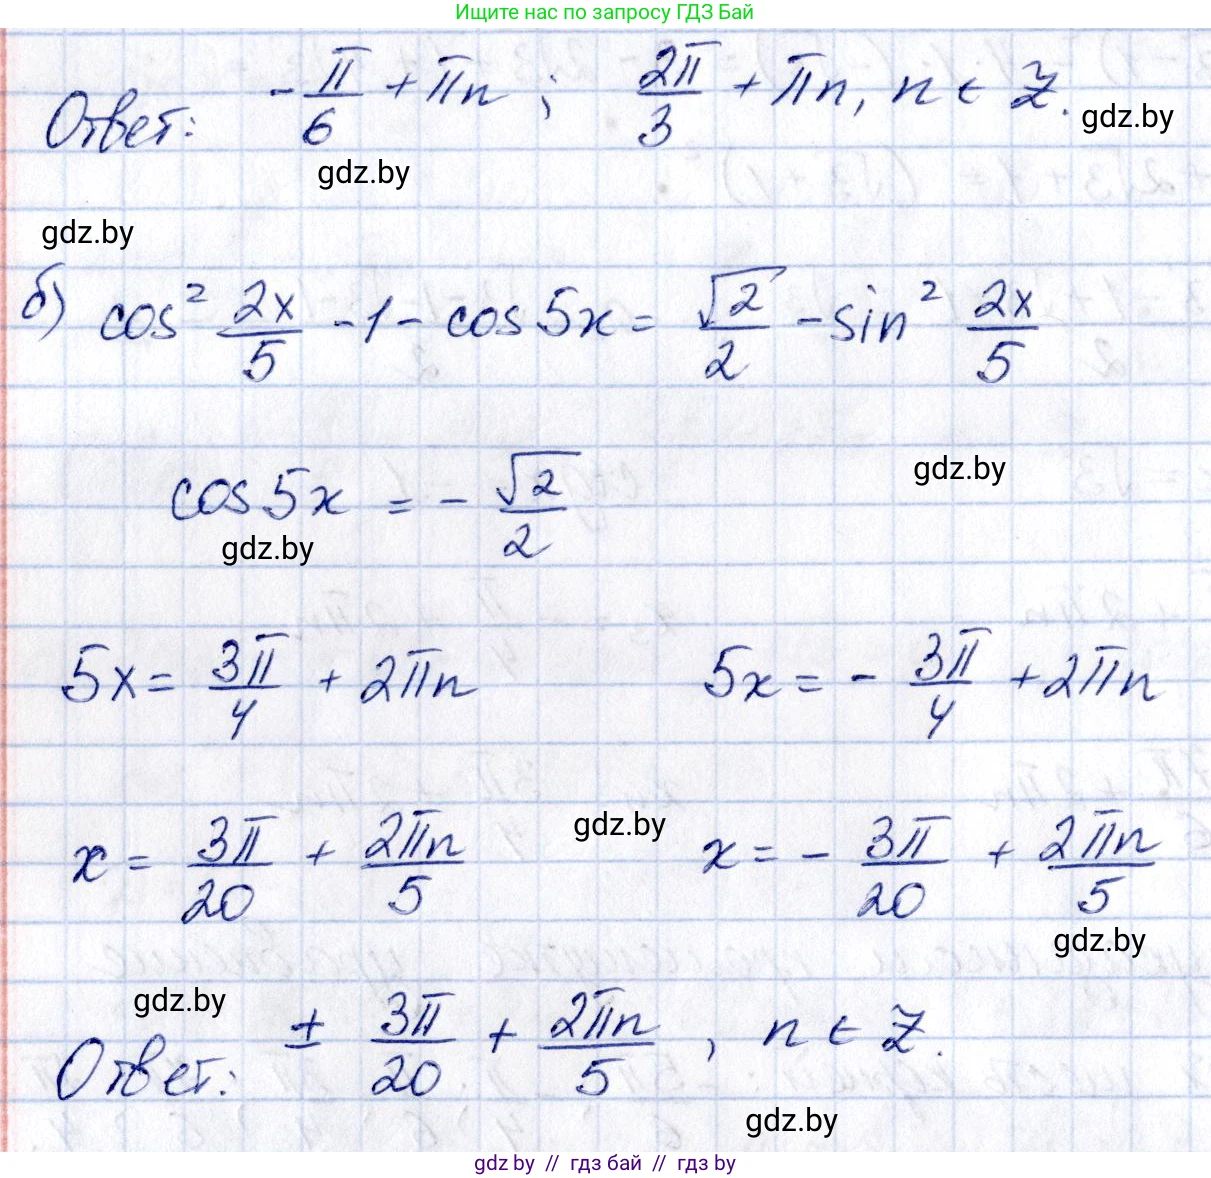 Ищите нас по запросу ГДЗ Бай
Ответ: -π/6 + πn; 2π/3 + πn, n ∈ Z.
gdz.by
gdz.by
gdz.by
б) cos² 2x/5 - 1 - cos 5x = √2/2 - sin² 2x/5
cos 5x = - √2/2
gdz.by
gdz.by
5x = 3π/4 + 2πn 5x = - 3π/4 + 2πn
x = 3π/20 + 2πn/5 x = - 3π/20 + 2πn/5
gdz.by
gdz.by
gdz.by
Ответ: ± 3π/20 + 2πn/5, n ∈ Z.
gdz.by
gdz.by // гдз бай // гдз by